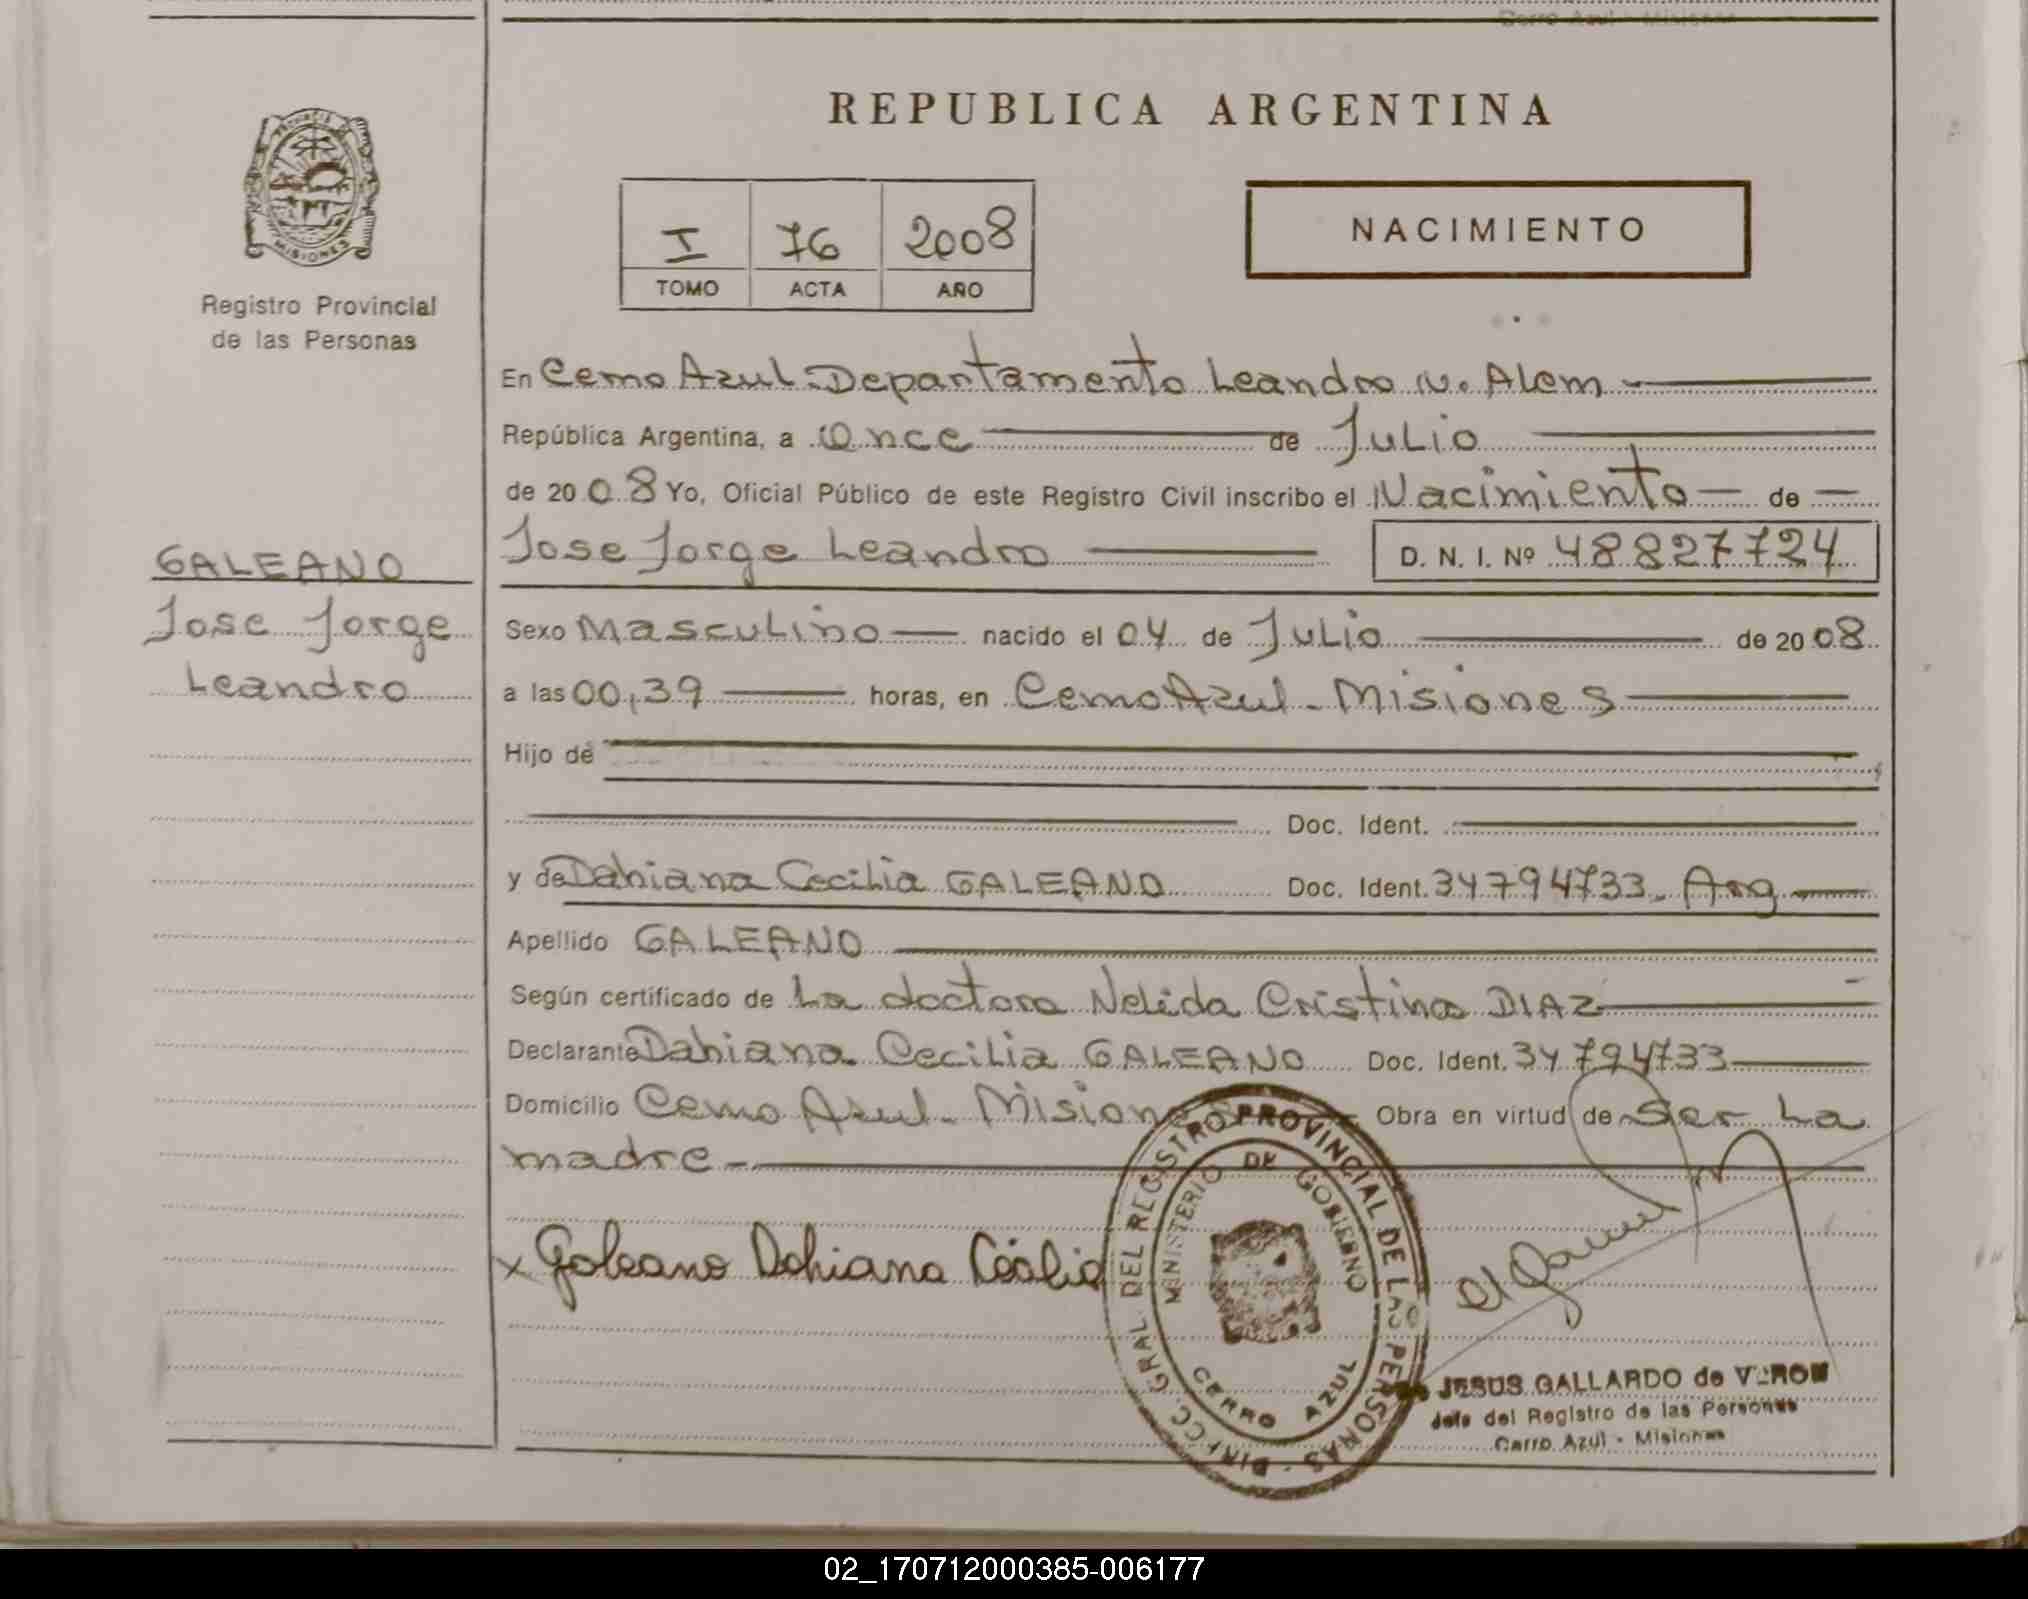 REPUBLICA ARGENTINA
PROVINCIA DE
MISIONES
Registro Provincial
de las Personas
I 76 2008
TOMO ACTA AÑO
NACIMIENTO
En Cerro Azul-Departamento Leandro N. Alem
República Argentina, a Once de Julio
de 2008 Yo, Oficial Público de este Registro Civil inscribo el Nacimiento de
Jose Jorge Leandro D. N. I. Nº 48827724
GALEANO
Jose Jorge
Leandro
Sexo Masculino nacido el 04 de Julio de 2008
a las 00,39 horas, en Cerro Azul - Misiones
Hijo de
Doc. Ident.
y de Dahiana Cecilia GALEANO Doc. Ident. 34794733 - Arg
Apellido GALEANO
Según certificado de La doctora Nelida Cristina DIAZ
Declarante Dahiana Cecilia GALEANO Doc. Ident. 34794733
Domicilio Cerro Azul - Misiones Obra en virtud de Ser La
madre -
x Galeano Dahiana Cecilia
DIRECC. GRAL. DEL REGISTRO PROVINCIAL DE LAS PERSONAS
MINISTERIO DE GOBIERNO
CERRO AZUL
JESUS GALLARDO de VERON
Jefe del Registro de las Personas
Cerro Azul - Misiones
02_170712000385-006177